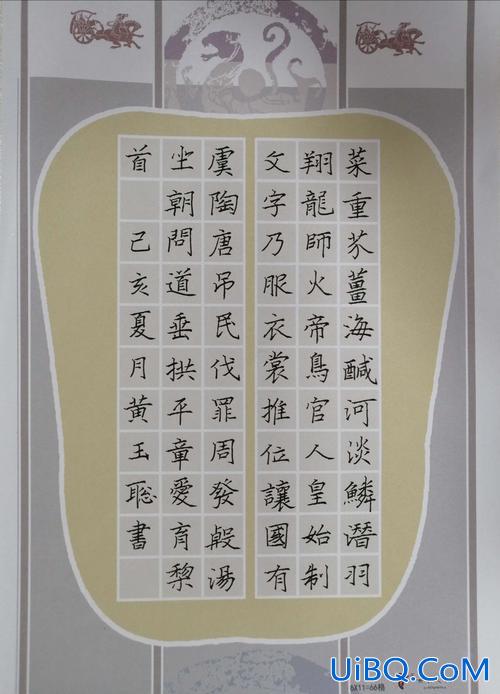 菜重芥薑海醎河淡鱗潛羽
翔龍師火帝鳥官人皇始制
文字乃服衣裳推位讓國有
虞陶唐吊民伐罪周發殷湯
坐朝問道垂拱平章愛育黎
首 己亥夏月黄玉聪書
6X11=66格
UiBQ.CoM